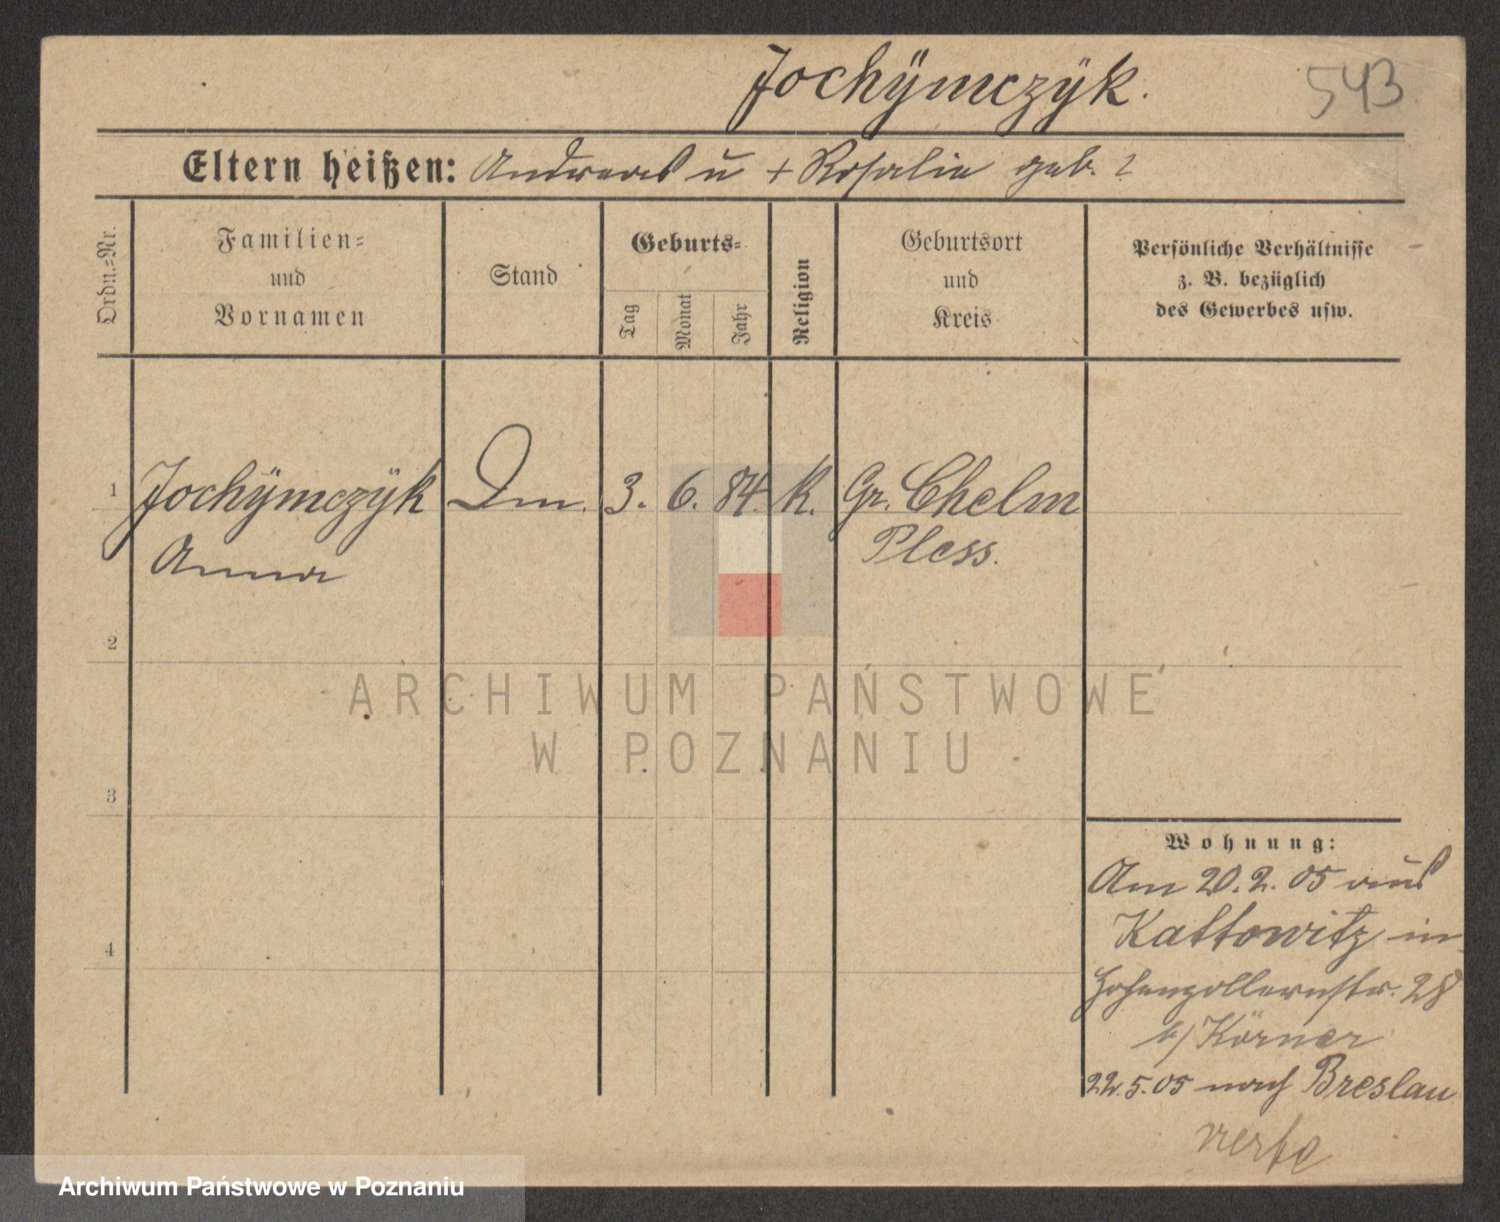 Jochÿmczÿk.
543
Eltern heißen: Andreas u + Rosalie geb. ?
Ordn.=Nr.
Familien=
und
Vornamen
Stand
Geburts=
Tag
Monat
Jahr
Religion
Geburtsort
und
Kreis
Persönliche Verhältnisse
z. B. bezüglich
des Gewerbes usw.
1 Jochÿmczÿk Dm. 3. 6. 84. k. Gr. Chelm
Anna Pless.
2
3
4
Wohnung:
Am 20.2.05 aus
Kattowitz in
Hohenzollernstr. 28
b/ Körner
22.5.05 nach Breslau
ARCHIWUM PAŃSTWOWE
W POZNANIU
Archiwum Państwowe w Poznaniu